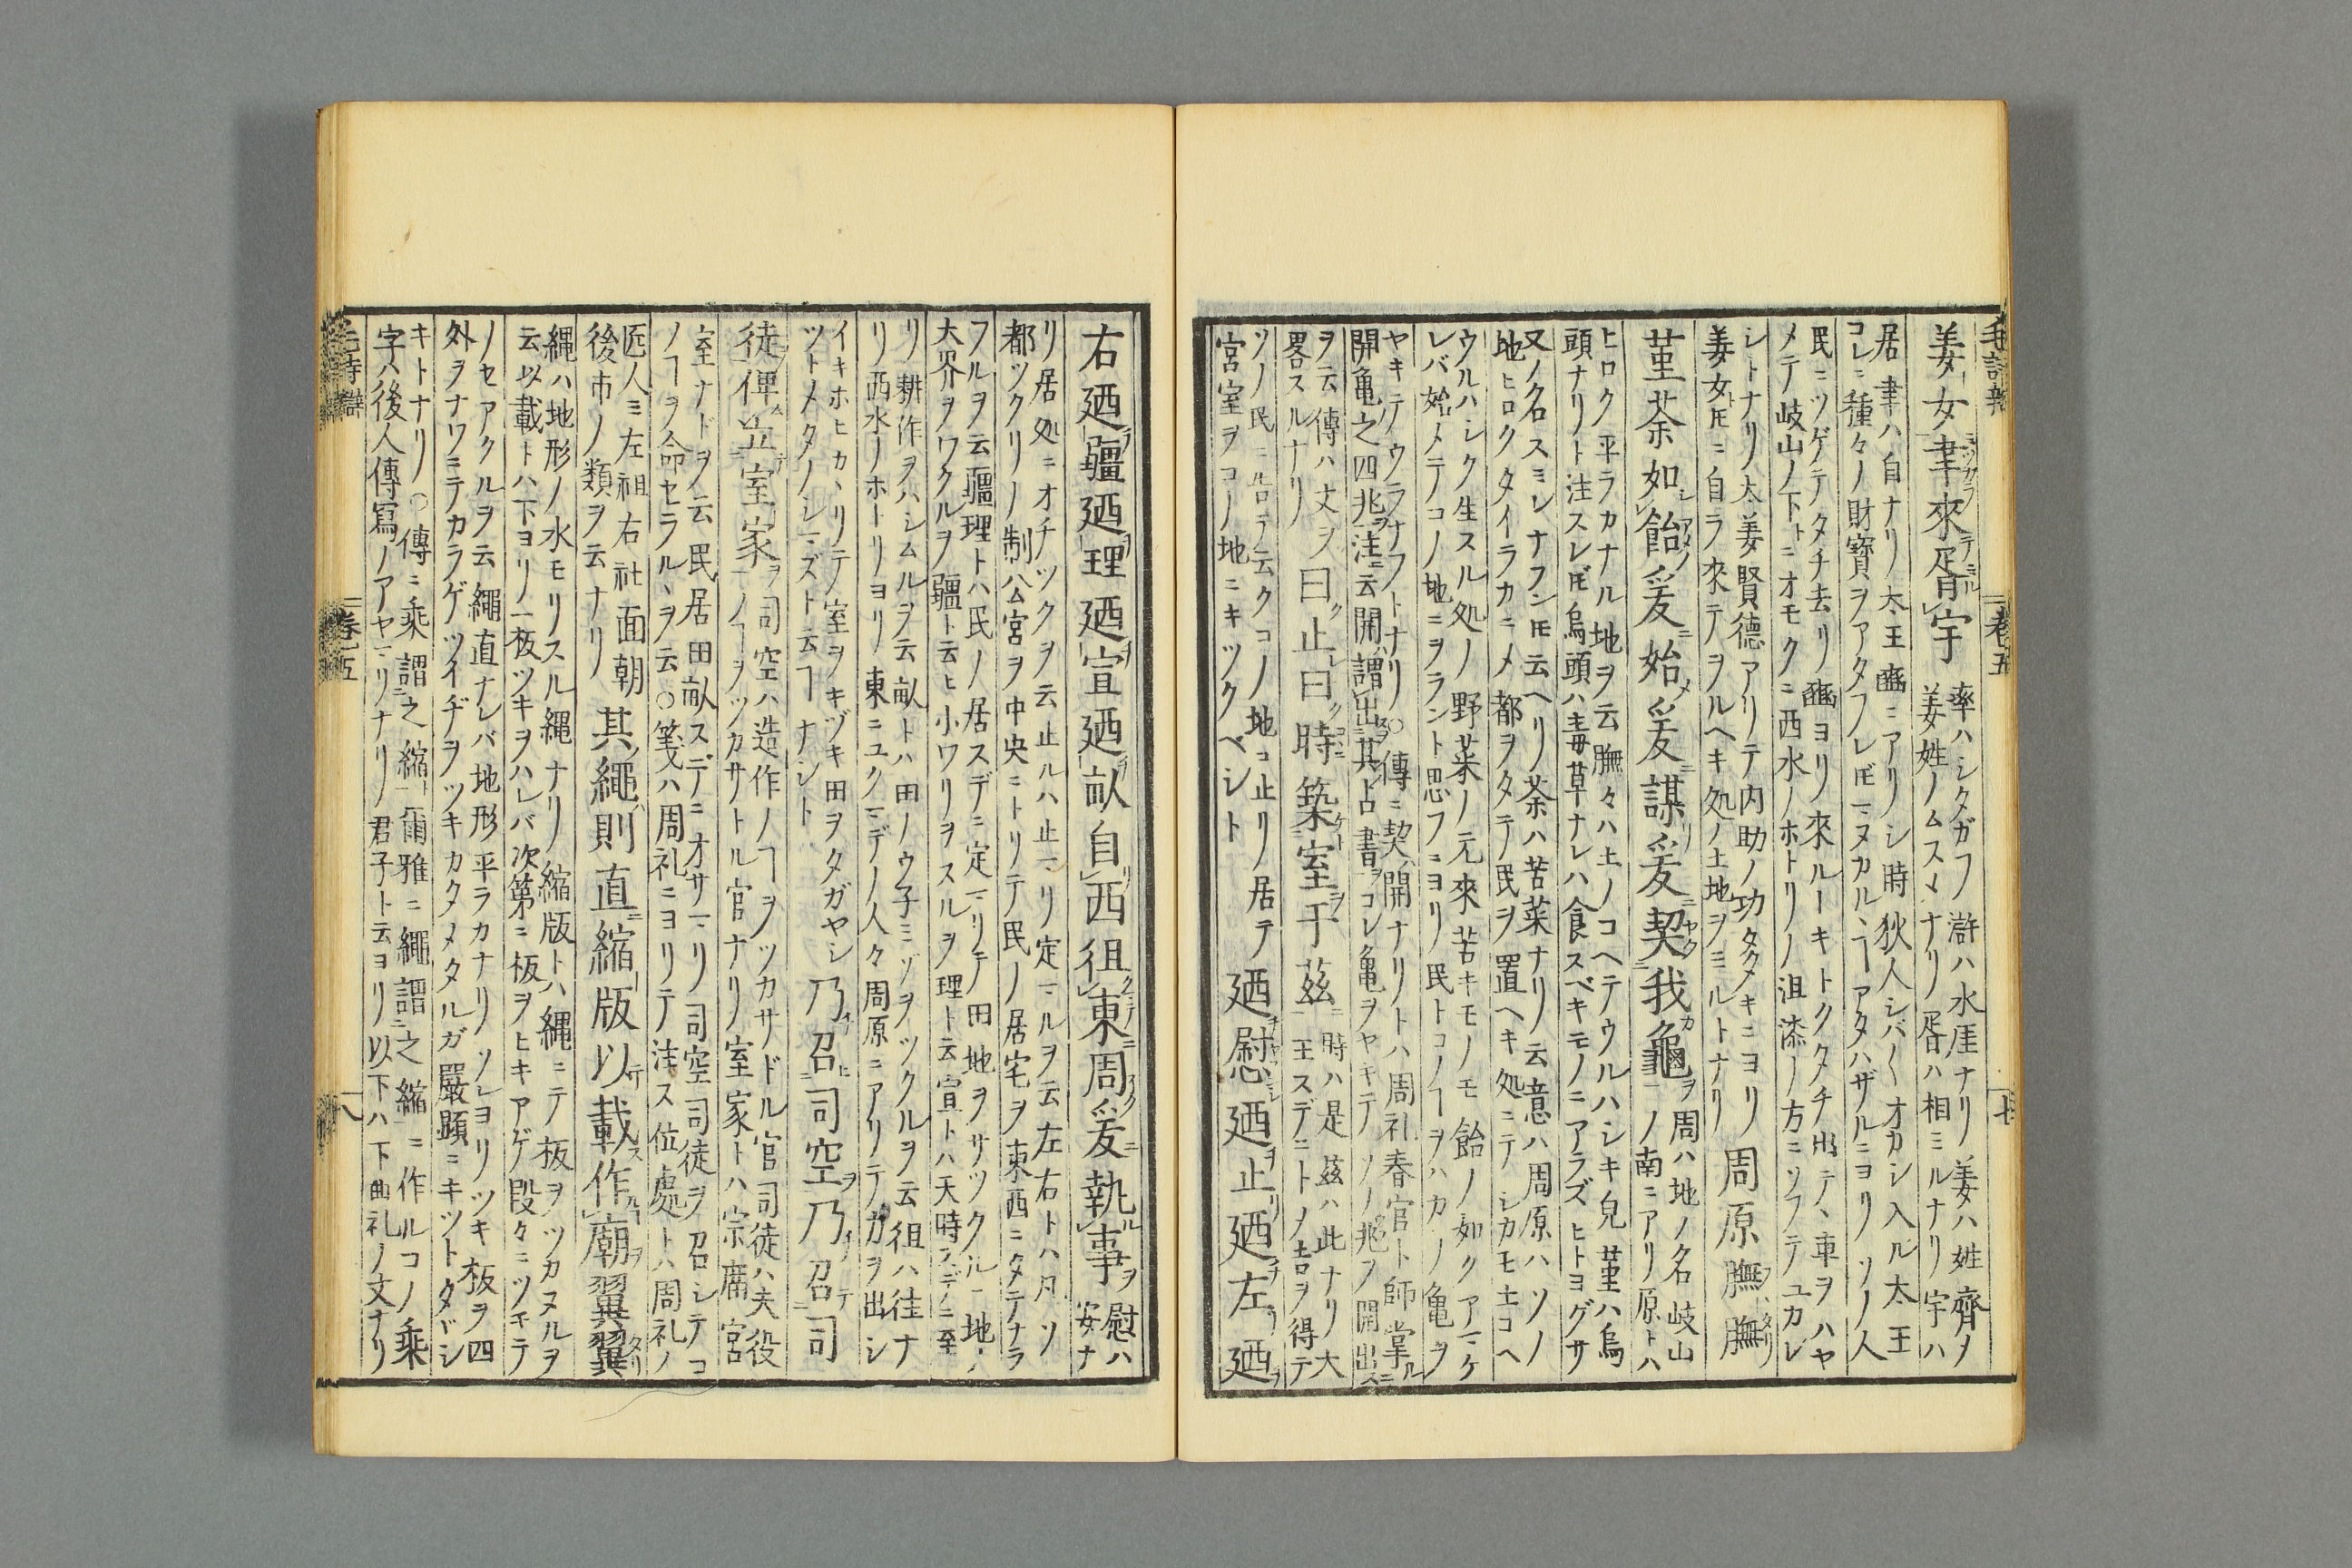 毛詩辨 卷五 七
姜女聿來胥宇
率ハシタガフ滸ハ水厓ナリ姜ハ姓齊ノ
姜姓ノムスメナリ胥ハ相ミルナリ宇ハ
居聿ハ自ナリ太王豳ニアリシ時狄人シバ〱オカシ入ル太王
コレニ種々ノ財寶ヲアタフレ𪜈マヌカルヽヿアタハザルニヨリソノ人
民ニツゲテタチ去リ豳ヨリ來ル一キトクタチ出テヽ車ヲハヤ
メテ岐山ノ下トニオモクニ西水ノホトリノ沮漆ノ方ニソフテユカレ
シトナリ太姜賢德アリテ内助ノ功タクメキニヨリ
姜女𪜈ニ自ラ來テヲルヘキ処ノ土地ヲミルトナリ
周原膴膴
堇荼如飴爰始爰謀爰契我龜
周ハ地ノ名岐山
ノ南ニアリ原トハ
ヒロク平ラカナル地ヲ云膴々ハ土ノコヘテウルハシキ皃堇ハ烏
頭ナリト注スレ𪜈烏頭ハ毒草ナレハ食スベキモノニアラズヒトヨグサ
又ノ名スミレナフン𪜈云ヘリ荼ハ苦菜ナリ云意ハ周原ハソノ
地ヒロクタイラカニメ都ヲタテ民ヲ置ヘキ処ニテシカモ土コヘ
ウルハシク生スル処ノ野菜ノ元來苦キモノモ飴ノ如クアマケ
レバ始メテコノ地ニヲラント思フニヨリ民トコノヿヲハカノ亀ヲ
ヤキテウラナフトナリ○傳ニ契開ナリトハ周礼春官ト師掌ル
開亀之四兆注云開謂出其占書コレ亀ヲヤキテソノ兆ヲ開出ス
ヲ云傳ハ丈ヲ
畧スルナリ
曰止曰時築室于茲
時ハ是茲ハ此ナリ大
王スデニトメ吉ヲ得テ
ソノ民ニ告テ云クコノ地コ止リノ居テ
宮室ヲコノ地ニキツクベシト
廼慰廼止廼左廼
右廼疆廼理廼宣廼畝自西徂東周爰執事
慰ハ
安ナ
リ居処ニオチツクヲ云止ルハ止マリ定マルヲ云左右トハ凡ソ
都ツクリノ制公宮ヲ中央ニトリテ民ノ居宅ヲ東西ニタテナラ
フルヲ云疆理トハ民ノ居スデニ定マリテ田地ヲサツクル一地ノ
大界ヲワクルヲ疆ト云ヒ小ワリヲスルヲ理ト云宣トハ天時スデニ至
リ耕作ヲハシムルヲ云畝トハ田ノウ子ミゾヲツクルヲ云徂ハ往ナ
リ西水ノホトリヨリ東ニユクマデノ人々周原ニアリテカヲ出シ
イキホヒカヽリテ室ヲキヅキ田ヲタガヤシ
ツトメタノシマズト云ヿナシト
乃召司空乃召司
徒俾立室家
司空ハ造作ノヿヲツカサドル官司徒ハ夫役
ノヿヲツカサトル官ナリ室家トハ宗庿宮
室ナドヲ云民居田畝スデニオサマリ司空司徒ヲ召シテコ
ノヿヲ命セラルヽヲ云○箋ハ周礼ニヨリテ注ス位處トハ周礼ノ
匠人ミ左祖右社面朝
後市ノ類ヲ云ナリ
其繩則直縮版以載作廟翼翼
縄ハ地形ノ水モリスル縄ナリ縮版トハ縄ニテ板ヲツカヌルヲ
云以載トハ下ヨリ一板ツキヲハレバ次第ニ板ヲヒキアゲ段々ニツキテ
ノセアクルヲ云繩直ナレバ地形平ラカナリソレヨリツキ板ヲ四
外ヲナワニテカラゲツイヂヲツキカタメタルガ嚴顕ニキツトタヾシ
キトナリ○傳ニ乘謂之縮爾雅ニ繩謂之縮ニ作ルコノ乘
字ハ後人傳寫ノアヤマリナリ君子ト云ヨリ以下ハ下曲礼ノ文ナリ
毛詩辨 卷五 八